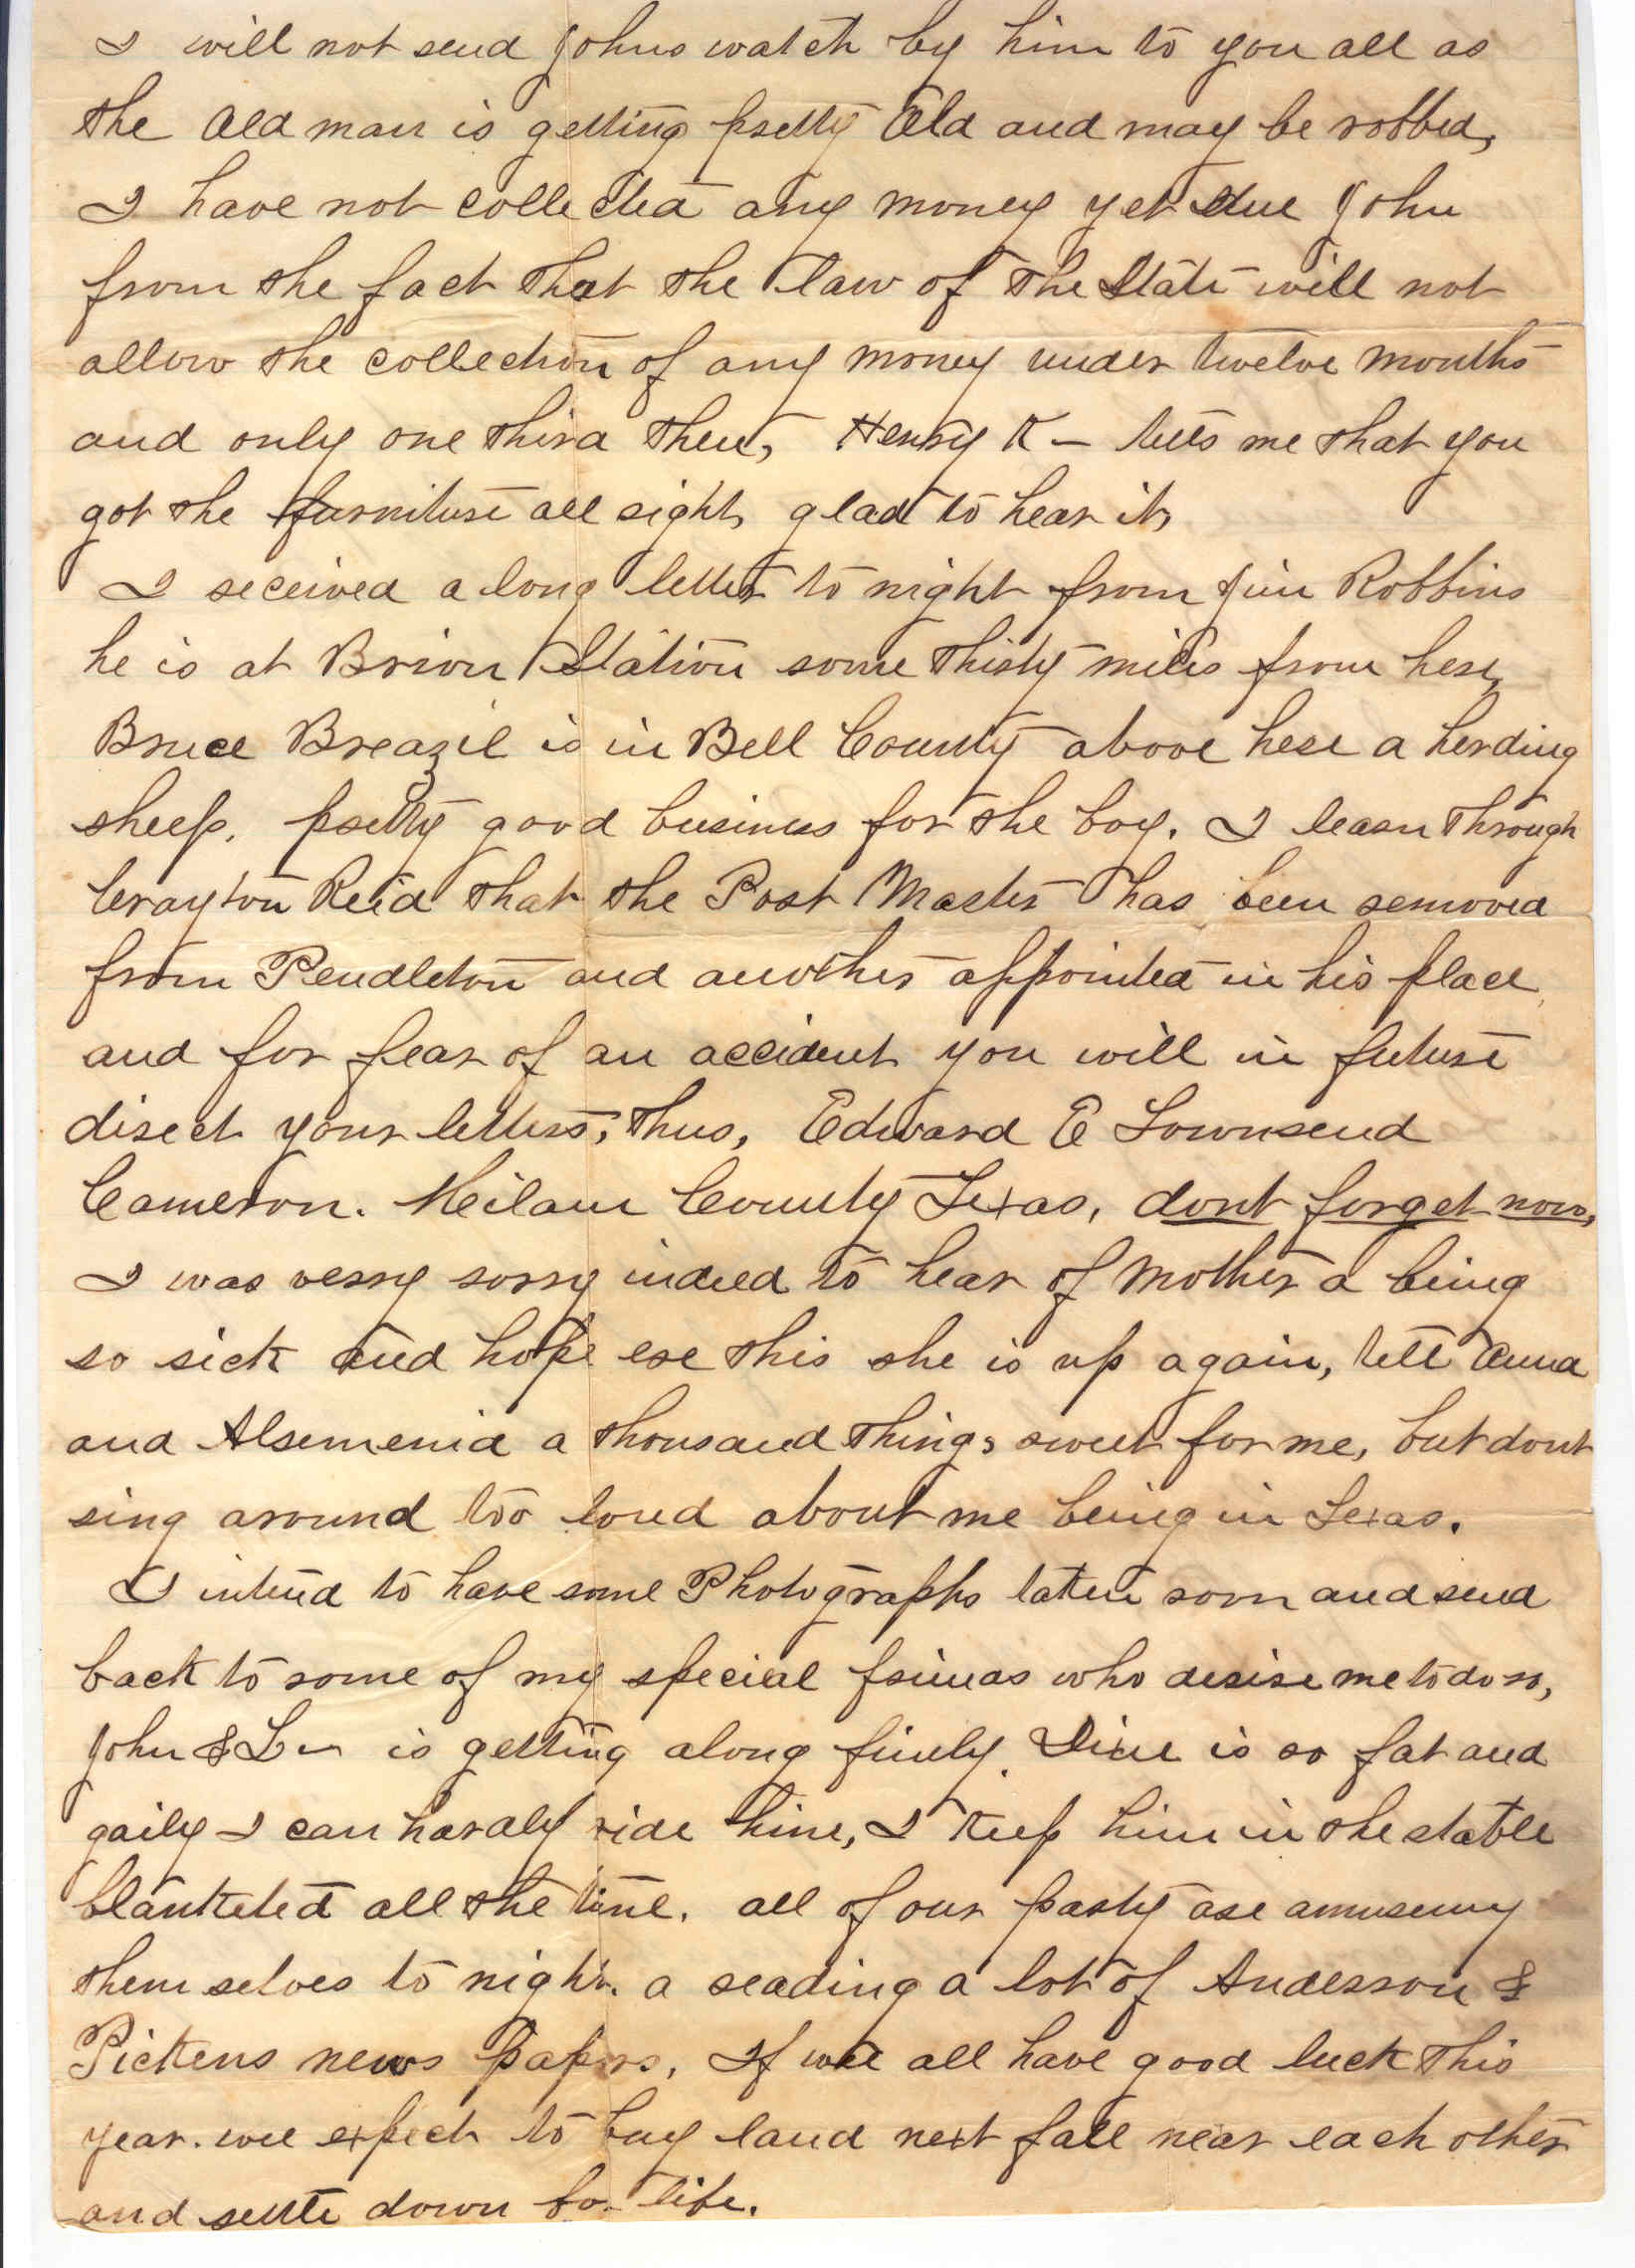 I will not send Johns watch by him to you all as
the Old man is getting pretty Old and may be robbed,
I have not collected any money yet due John
from the fact that the law of the State will not
allow the collection of any money under twelve months
and only one third then, Henry K – tells me that you
got the furniture all right, glad to hear it,
I received a long letter to night from Jim Robbins
he is at Brion Station some thirty miles from here,
Bruce Breazil is in Bell County above here a herding
sheep. pretty good business for the boy. I learn through
Crayton Reid that the Post Master has been removed
from Pendleton and another appointed in his place
and for fear of an accident you will in future
direct your letters, thus, Edward E Townsend
Cameron. Meilam County Texas, dont forget now,
I was verry sorry indeed to hear of Mother a being
so sick and hope ere this she is up again, tell Anna
and Alsemenia a thousand things sweet for me, but dont
sing around too loud about me being in Texas.
I intend to have some Photographs taken soon and send
back to some of my special friends who desire me to do so,
John & L – is getting along finely. Dixie is so fat and
gaily I can hardly ride him, I keep him in the stable
blanketed all the time. all of our party are amuseing
them selves to night. a reading a lot of Anderson &
Pickens news papers, If wee all have good luck this
year. wee expect to buy land next fall near each other
and settle down for life.